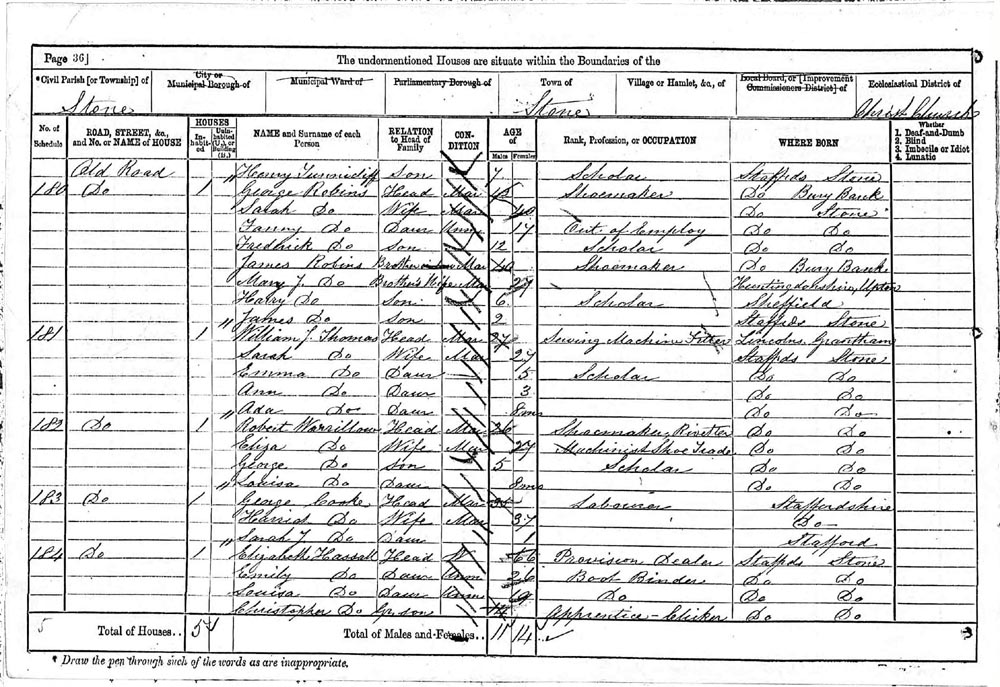 Page 36]
The undermentioned Houses are situate within the Boundaries of the
*Civil Parish [or Township] of
City or Municipal Borough of
Municipal Ward of
Parliamentary Borough of
Town of
Village or Hamlet, &c., of
Local Board, or [Improvement Commissioners District] of
Ecclesiastical District of
Stone Stone Christ Church
No. of Schedule
ROAD, STREET, &c., and No. or NAME of HOUSE
HOUSES
In-habit-ed
Unin-habited (U.), or Building (B.)
NAME and Surname of each Person
RELATION to Head of Family
CON-DITION
AGE of
Males Females
Rank, Profession, or OCCUPATION
WHERE BORN
Whether
1. Deaf-and-Dumb
2. Blind
3. Imbecile or Idiot
4. Lunatic
Old Road Henry Tunnicliff Son 7 Scholar Staffds Stone
180 Do 1 George Robins Head Mar Shoemaker Do Bury Bank
Sarah Do Wife Mar 40 Do Stone
Fanny Do Daur Unm 17 Out of Employ Do Do
Fredrick Do Son 12 Scholar Do Do
James Robins Brother Mar 40 Shoemaker Do Bury Bank
Mary J. Do Brother's Wife Mar 29 Huntingdonshire, Upton
Harry Do Son 6 Scholar Sheffield
James Do Son 2 Staffds Stone
181 1 William J. Thomas Head Mar Sewing Machine Fitter Lincolns. Grantham
Sarah Do Wife Mar 27 Staffds Stone
Emma Do Daur 5 Scholar Do Do
Ann Do Daur 3 Do Do
Ada Do Daur 8ms Do Do
182 Do 1 Robert Warrillow Head Mar 26 Shoemaker, Rivetter Do Do
Eliza Do Wife Mar 27 Machinist Shoe Trade Do Do
George Do Son 5 Scholar Do Do
Louisa Do Daur 8ms Do Do
183 Do 1 George Cooke Head Mar Labourer Staffordshire
Harriet Do Wife Mar 37 Do
Sarah J. Do Daur 1 Stafford
184 Do 1 Elizabeth Hassall Head W. 66 Provision Dealer Staffds Stone
Emily Do Daur Unm 26 Boot Binder Do Do
Louisa Do Daur Unm 19 Do Do Do
Christopher Do Gr. son 14 Apprentice - Clicker Do Do
5 Total of Houses.. 5 Total of Males and Females.. 11 14
* Draw the pen through such of the words as are inappropriate.